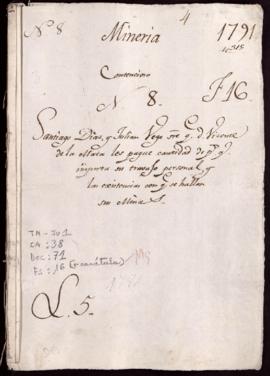 4
Nº 8 Mineria 1791
Contencioso
N. 8. F 16
Santiago Dias, y Julian Vega sre q. d. Vicente
de la Mata les pague cantidad de ps. q.
importa su trabajo personal y
las existencias con q. se hallan
sus Minas
TM-JU1
CA: 38
DOC: 71
Fs: 16 (+carátula)
L. 5.